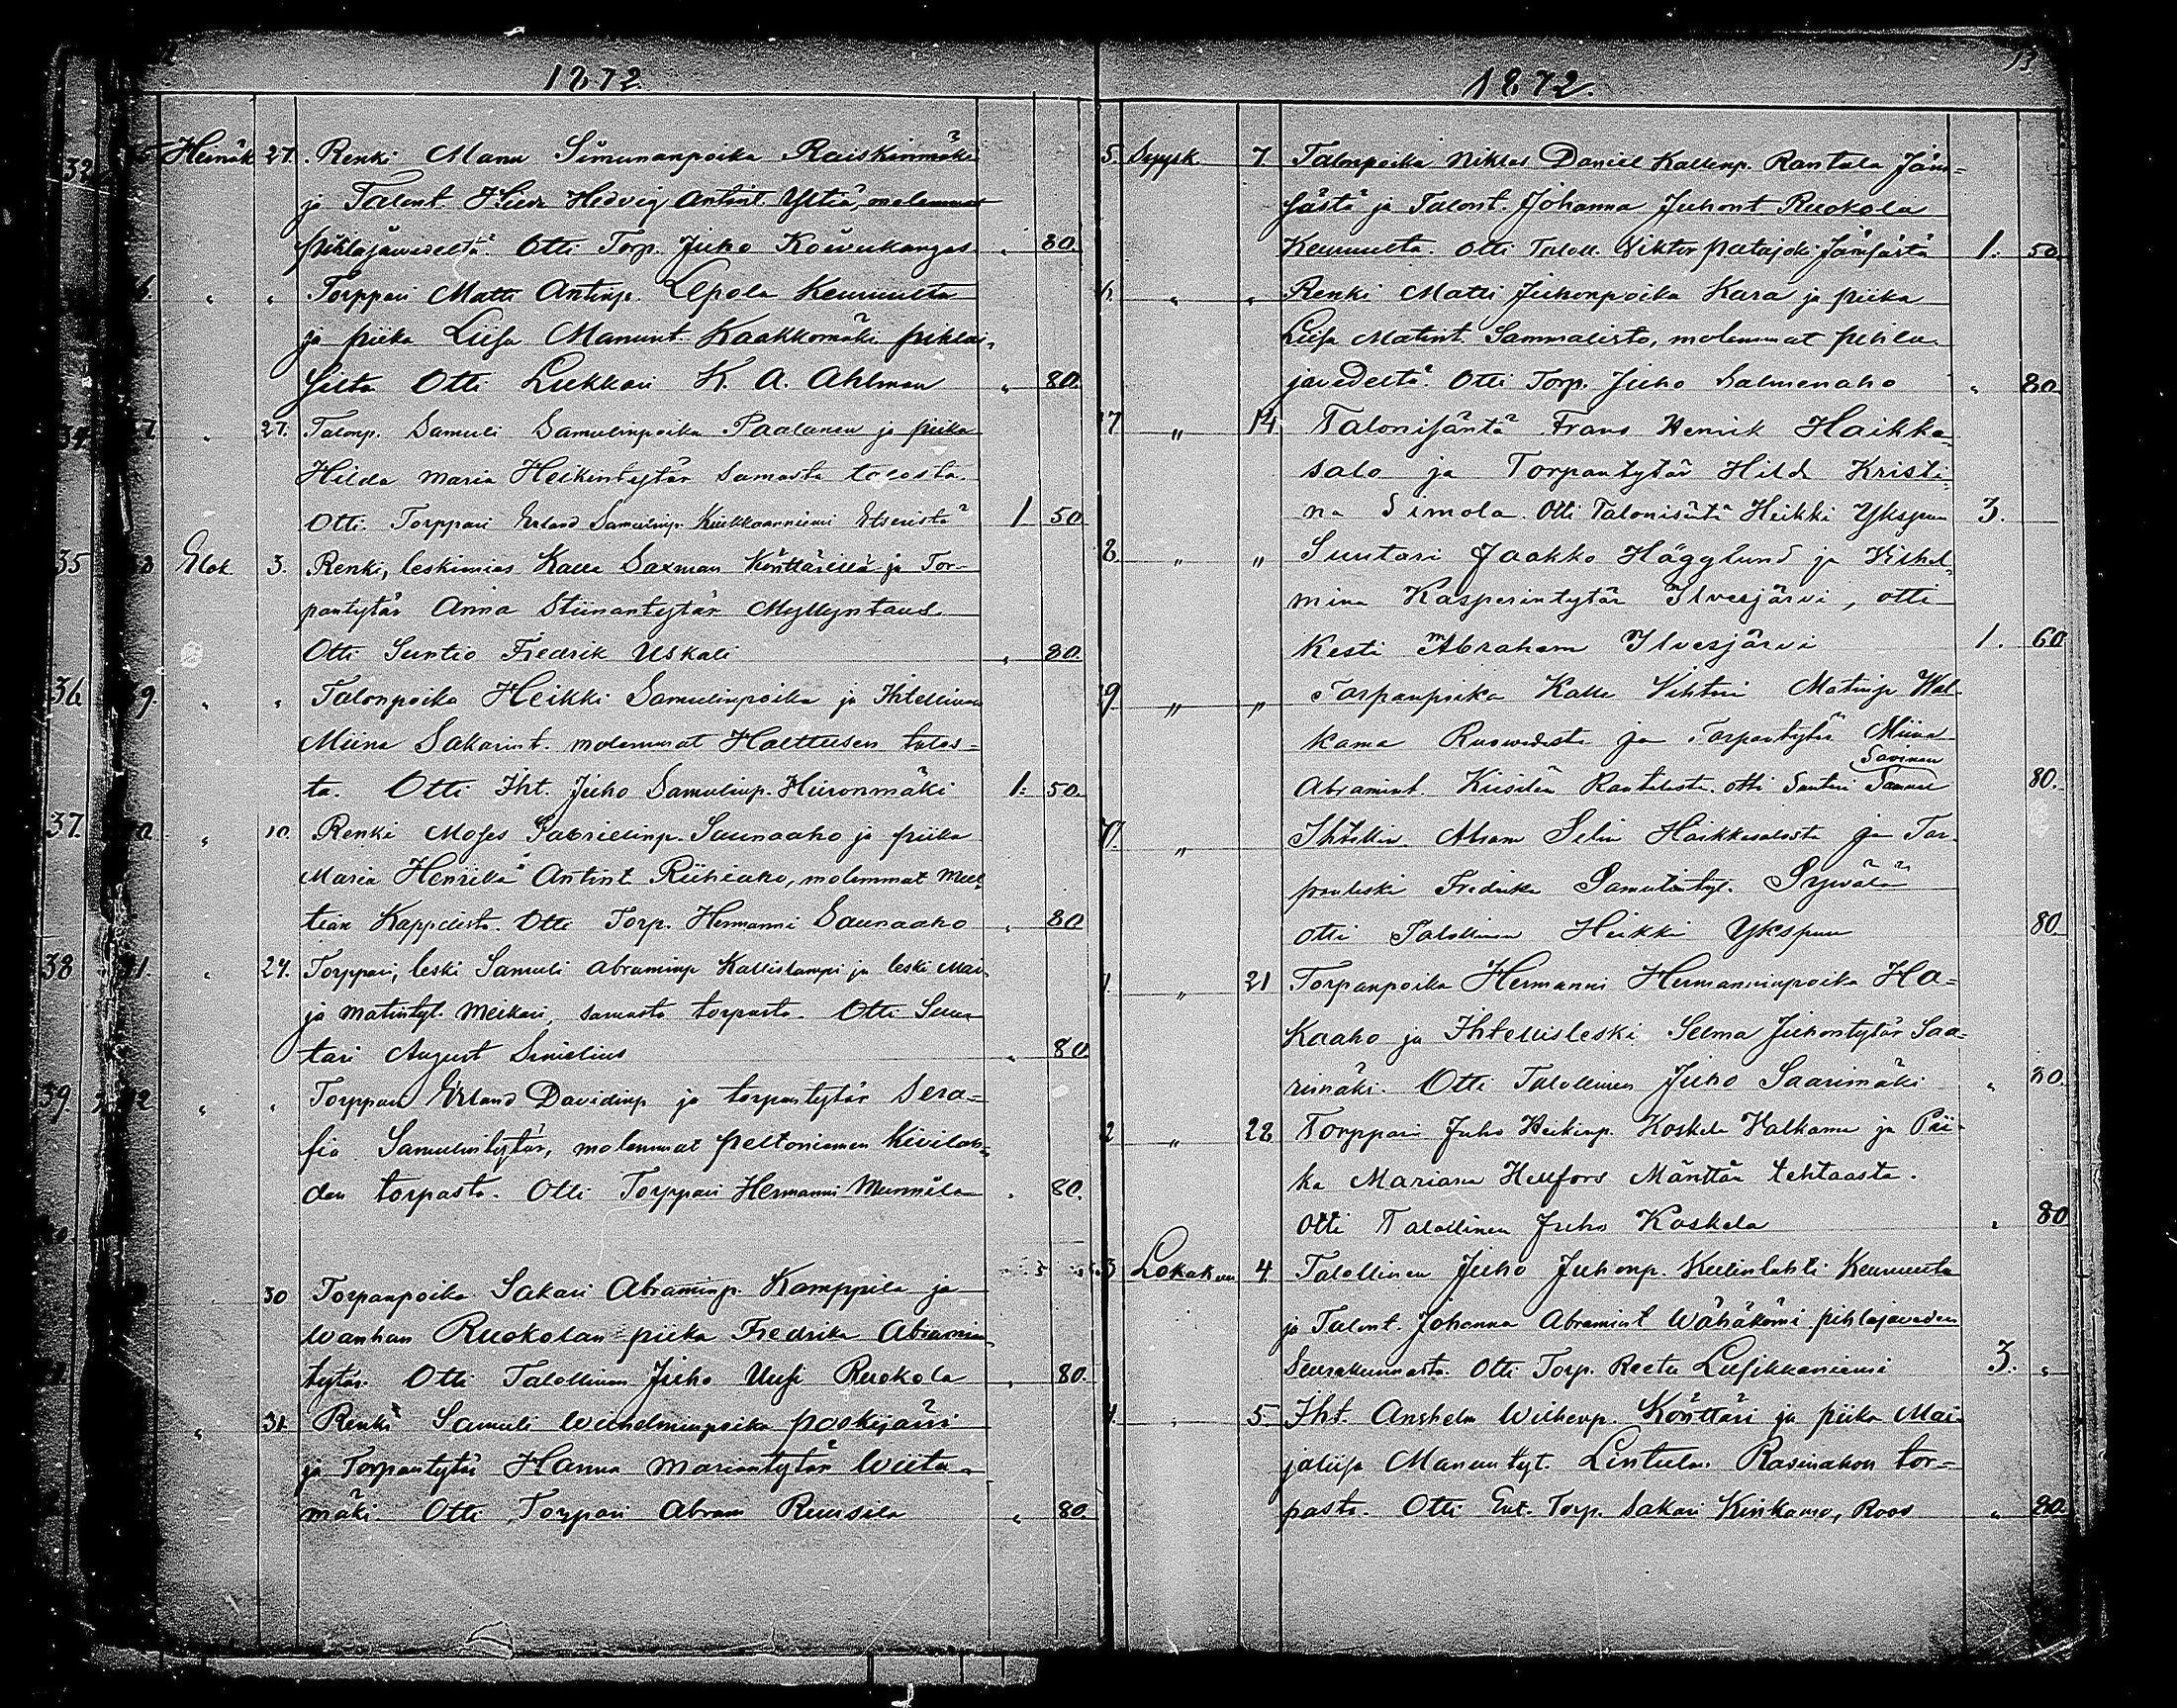 1872.
Heinäk. 27. Renki Manu Simunanpoika Raiskinmäki
ja Talont. Hedvig Antint. Yltiä, molemmat
pihlajawedeltä. Otti Torp. Juho Koiwukangas „ 80.
6. „ „ Torppari Matti Antinp. Lepola Keuruulta
ja piika Liisa Manunt. Kaakkomäki pihlai-
silta Otti Lukkari K. A. Ahlman „ 80.
34. 7. „ 27. Talonp. Samuli Samulinpoika Paalanen ja piika
Hilda Maria Heikintytär Samasta talosta.
Otti Torppari Erland Samulinp. Etseristä 1 50
35 8 Elok. 3. Renki, leskimies Kalle Saxman Könttärillä ja Tor-
pantytär Anna Stiinantytär Myllyntaus
Otti Suntio Fredrik Uskali „ 80.
36. 9. „ „ Talonpoika Heikki Samulinpoika ja Ihtellinen
Miina Sakarint. molemmat Halttusen talos-
ta. Otti Iht. Juho Samulinp. Hiironmäki 1: 50.
37. 0. „ 10. Renki Moses Gabrielinp. Saunaaho ja piika
Maria Henrika Antint Riihiaho, molemmat Mul-
tian Kappelista. Otti Torp. Hermanni Saunaaho „ 80
38 31. „ 24. Torppari, leski Samuli Abraminp Kallislampi ja leski Mai-
ja Matintyt. Meikari, samasta torpasta. Otti Suu-
tari August Sinielius „ 80
39. 32 „ „ Torppari Erland Davidinp ja torpantytär Sera-
fia Samulintytär, molemmat peltoniemen Kivilah-
den torpasta. Otti Torppari Hermanni Mennilan „ 80.
30 Torpanpoika Sakari Abraminp. Kamppila ja
Wanhan Ruokolan piika Fredrika Abramin-
tytär. Otti Talollinen Juho Uusi Ruokola „ 80.
„ 31 Renki Samuli Wilhelminpoika poskijärvi
ja Torpantytär Hanna Mariantytär Wiita-
mäki. Otti Torppari Abram Ruusila „ 80.
13
1872.
5. Syysk. 7. Talonpoika Niklas Daniel Kallenp. Rantala Jäm-
sästä ja Talont. Johanna Juhont Ruokola
Keuruulta. Otti Taloll. Viktor patajoki Jämsästä 1. 50
6. „ „ Renki Matti Juhonpoika Kara ja piika
Liisa Matint. Sammalisto, molemmat pihla-
javedeltä. Otti Torp. Juho Salmenaho „ 80
7 „ 14 Talonisäntä Frans Henrik Haikka-
salo ja Torpantytär Hilda Kristi-
na Simola. Otti Talonisäntä Heikki Ykspuu 3.
8. „ „ Suutari Jaakko Hägglund ja Vilhel-
mina Kasperintytär Ilvesjärvi, otti
Kesti Abraham Ilvesjärvi 1. 60
9 „ „ Torpanpoika Kalle Vihtori Matinp Wal-
kama Ruowedestä ja Torpantytär Miina
Savinen
Abramint. Kiisilän Rantalasta. otti Suutari 80.
„ Ihtellin. Abram Selin Haikkasalosta ja Tor-
panleski Fredrika Samulintyt. Pywälä
otti Talollinen Heikki Ykspuu 80.
1 „ 21 Torpanpoika Hermanni Hermanninpoika Ha-
kaaho ja Ihtellisleski Selma Juhontytär Saa-
rimäki. Otti Talollinen Juho Saarimäki „ 80.
2 „ 22 Torppari Juho Heikinp. Koskela Walkama ja Pii-
ka Mariana Hellfors Mänttän tehtaasta.
Otti Talollinen Juho Koskela „ 80
3 Lokakuu 4. Talollinen Juho Juhonp. Keuruulta
ja Talont. Johanna Abramint Wähäkämi pihlajaveden
Seurakunnasta. Otti Torp. Reetu Liisikkaniemi 3. „
4. „ 5 Iht. Anshelm Wilhemp. Könttäri ja piika Mai-
jaliisa Manuntyt. Lintulan Rasinahon tor-
pasta. Otti Ent. Torp. Sakari Kinkamo, Roos „ 80.